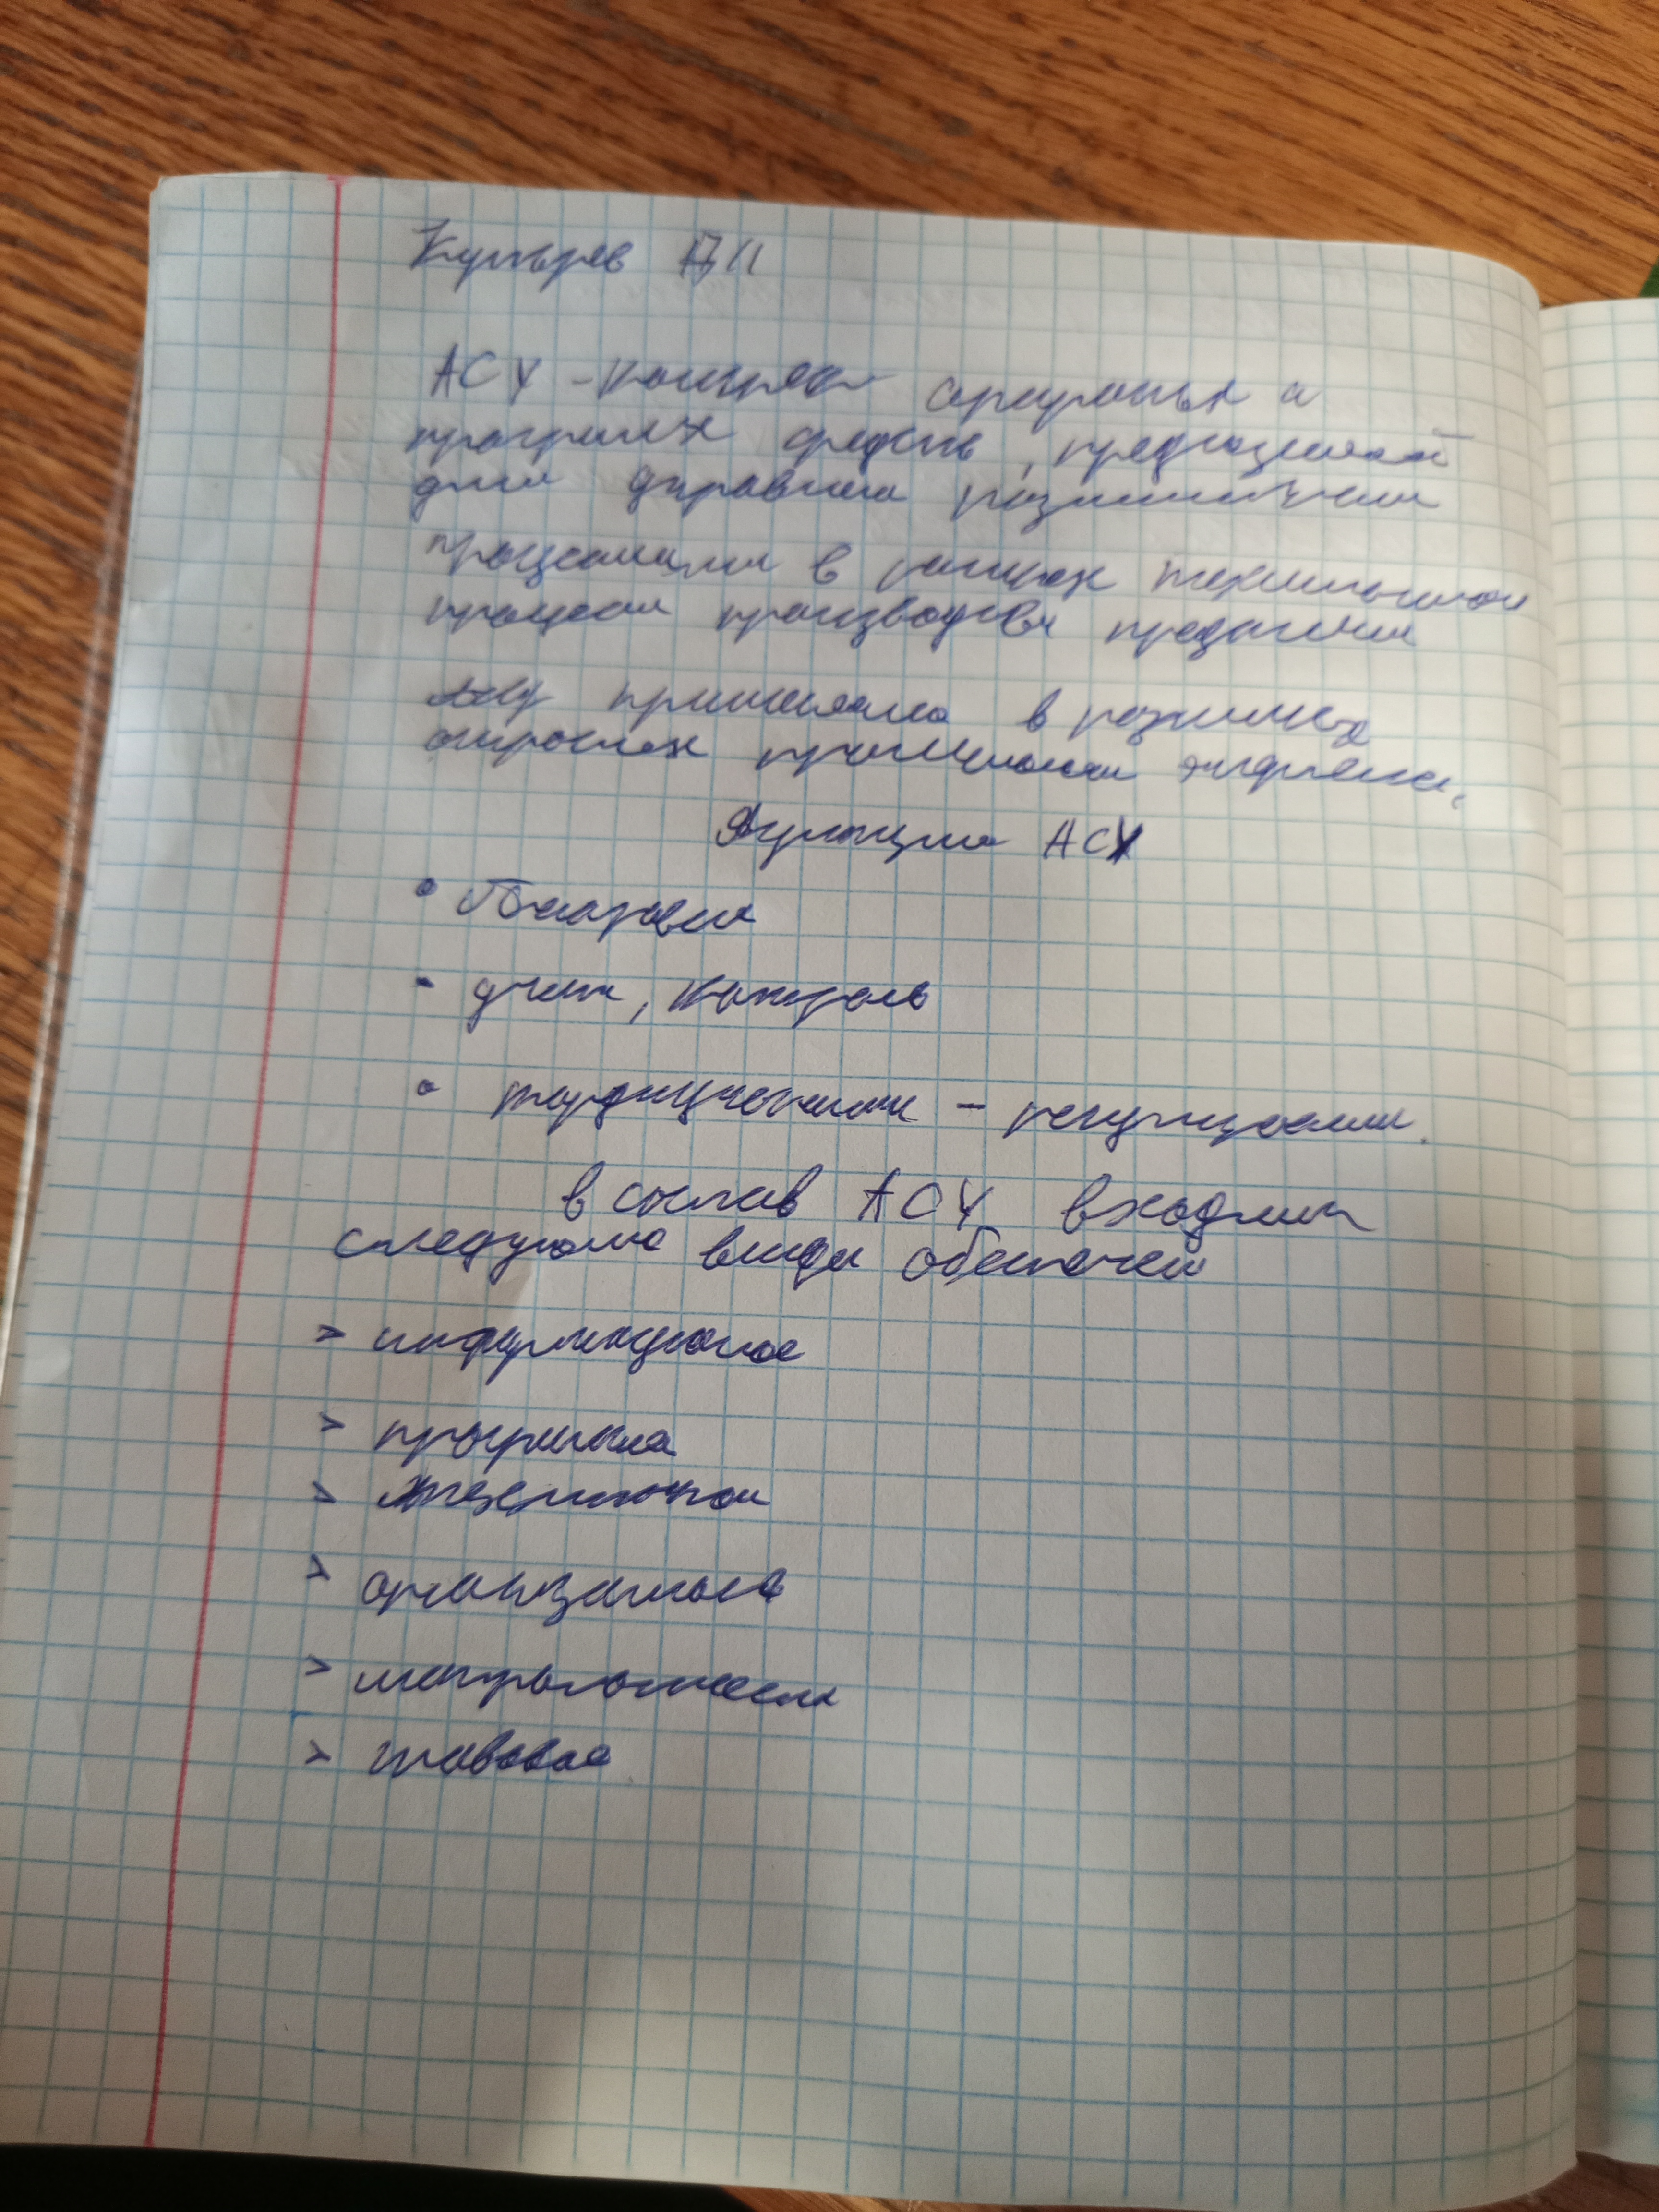 АСУ - комплекс аппаратных и
программых средств, предназначеный
для управления различными
процессами в рамках технологическом
процесса производства предприятия
АСУ применяется в различных
отраслях промышленности энергетике,
Функции АСУ
• Планирован
- учет, контроль
• координирование - регулирование.
в состав АСУ входит
следующие виды обеспечей
> информационое
> програмное
> техническое
> организационое
> метрологическое
> правовое